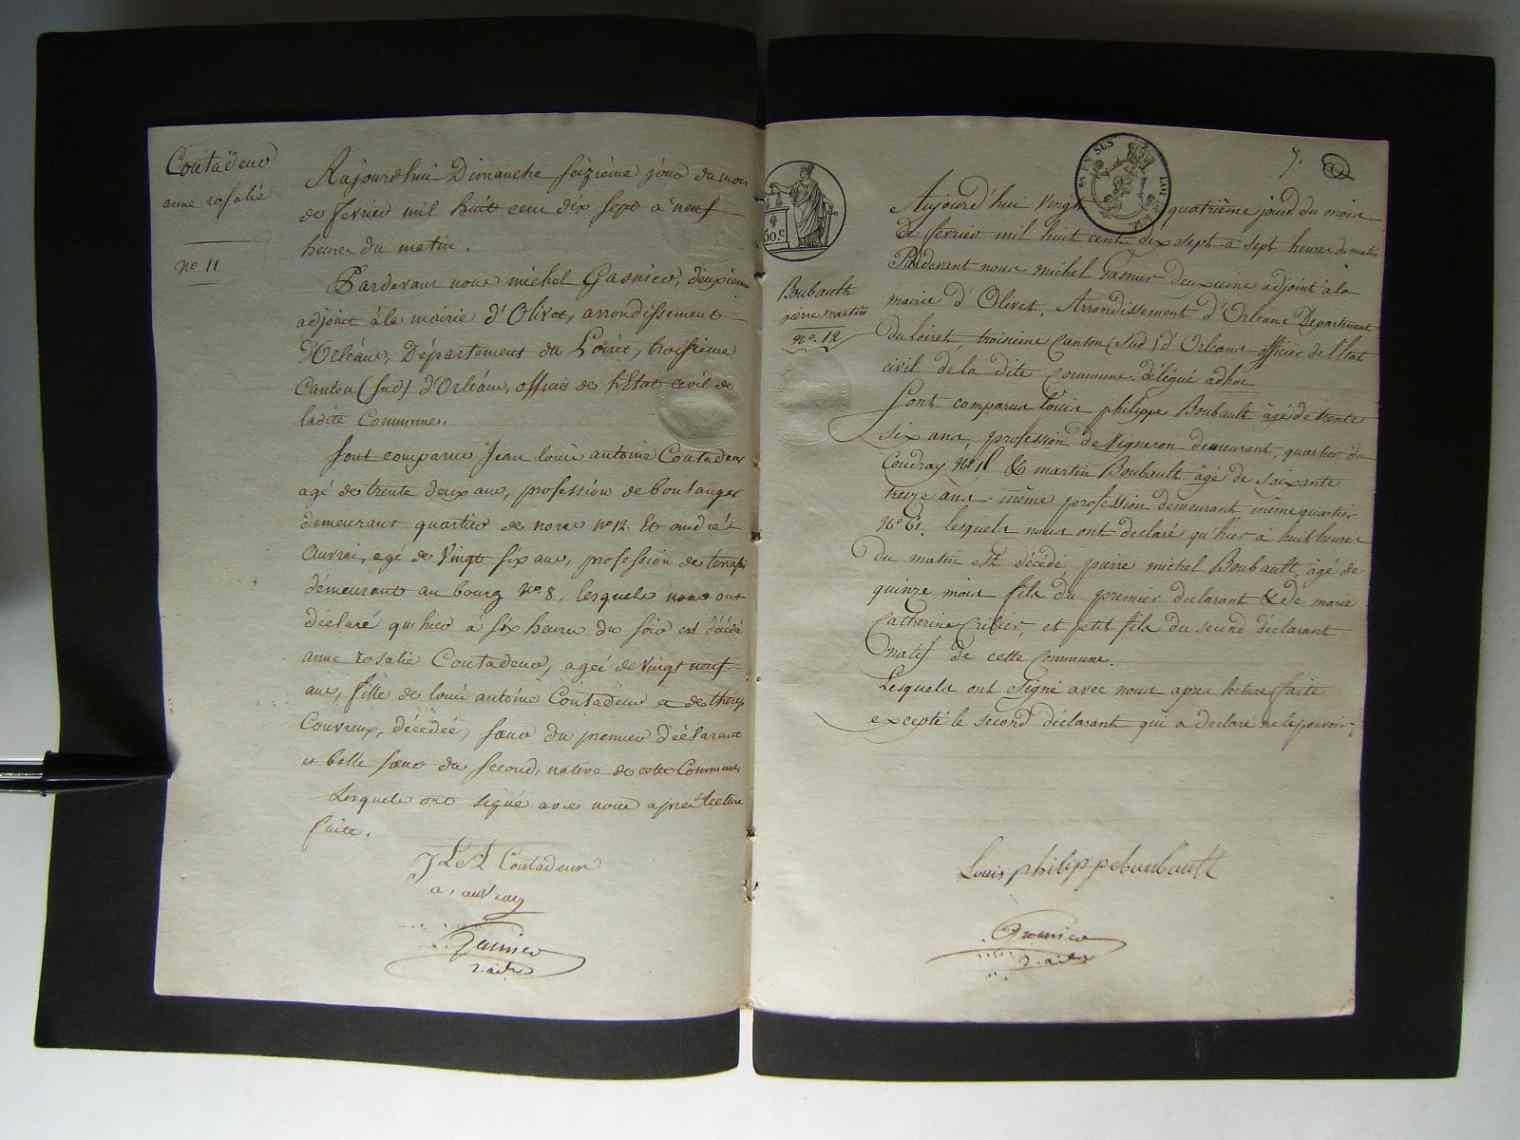 Coutadeur
anne rosalie
no 11
Aujourdhui Dimanche seizième jour du mois
de fevrier mil huit cent dix sept a neuf
heures du matin.
Pardevant nous michel Gasnier, deuxieme
adjoint à la mairie d'Olivet, arrondissement
d'Orléans, Département du Loiret, troisieme
Canton (sud) d'Orléans, officier de l'Etat civil de
ladite Commune.
Sont comparus Jean louis antoine Coutadeur
agé de trente deux ans, profession de boulanger
demeurant quartier de nore no 12. Et andré
auvrai, agé de Vingt six ans, profession de
demeurant au bourg No 8, lesquels nous ont
déclaré qu'hier à six heures du soir est décédé
anne rosalie Coutadeur, ageé de vingt neuf
ans, fille de louis antoine Coutadeur et de
Couvreux, décédée, sœur du premier déclarant
et belle sœur du second, native de cette Commune
Lesquels ont signé avec nous après lecture
faite.
Coutadeur
a. auvray
Gasnier
2. adj
50.c
7.
Boubault
pierre martin
no. 12
Aujourd'hui vingt quatrième jour du mois
De fevrier mil huit cent dix sept a sept heures du matin
Pardevant nous michel Gasnier deuxieme adjoint à la
mairie d'Olivet, Arrondissement d'Orleans Departement
du loiret, troisieme Canton (Sud) d'Orleans officier de l'Etat
civil de la dite Commune délégué adhoc
Sont comparus louis philippe Boubault âgé de trente
six ans, profession de Vigneron demeurant, quartier du
Coudray & martin Boubault âgé de soixante
treize ans même profession demeurant même quartier
No 61. lesquels nous ont declaré qu'hier à huit heures
du matin est décédé, pierre michel Boubault, âgé de
quinze mois fils du premier declarant & de marie
Catherine Cribier, et petit fils du second déclarant
natif de cette Commune.
Lesquels ont Signé avec nous apres lecture faite
excepté le second déclarant qui a declaré ne le pouvoir
Louis philippe boubault
Gasnier
2. adj